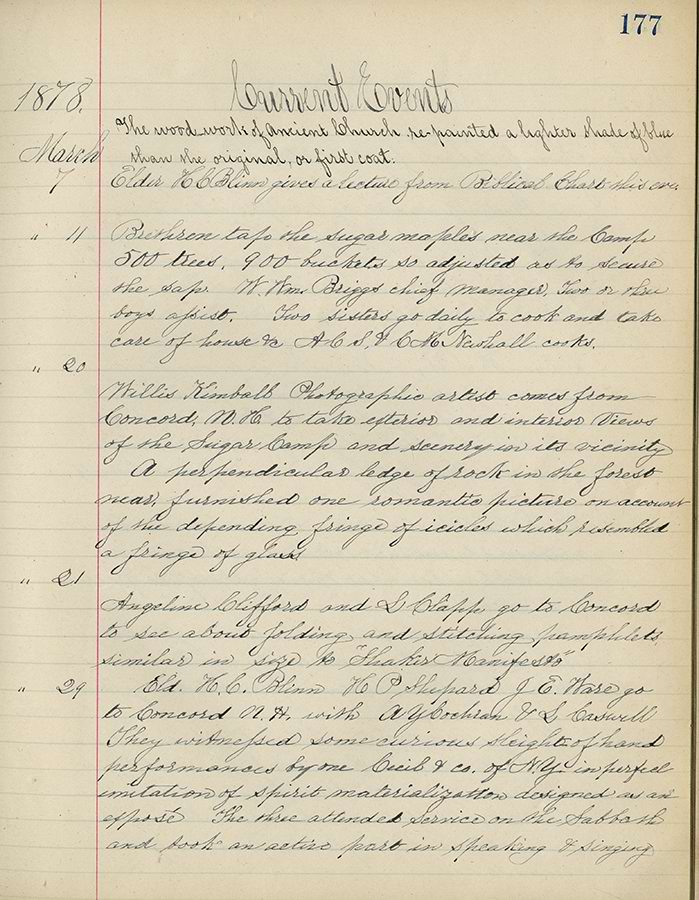 177
1878. Current Events
The wood-work of ancient Church re-painted a lighter shade of blue
March than the original, or first coat.
7 Elder H C Blinn gives a lecture from Biblical Chart this eve.
" 11 Brethren tap the sugar maples near the Camp
500 trees, 900 buckets so adjusted as to secure
the sap. W. Wm. Briggs chief manager, Two or three
boys assist. Two sisters go daily to cook and take
care of house &c A C S. & C M Newhall cooks.
" 20
Willis Kimball Photographic artist comes from
Concord, N.H. to take exterior and interior Views
of the Sugar Camp and scenery in its vicinity
A perpendicular ledge of rock in the forest
near, furnished one romantic picture on account
of the depending fringe of icicles which resembled
a fringe of glass
" 21
Angeline Clifford and L Clapp go to Concord
to see about folding and stitching pamphlets
similar in size to "Shaker Manifesto"
" 29 Eld. H. C. Blinn H P Shepard J. E. Ware go
to Concord N. H. with A Y Cochran & L Caswell
They witnessed some curious sleight of hand
performances by one Cecil & co. of N.Y. in perfect
imitation of spirit materialization designed as an
exposé The three attended service on the Sabbath
and took an active part in speaking & singing